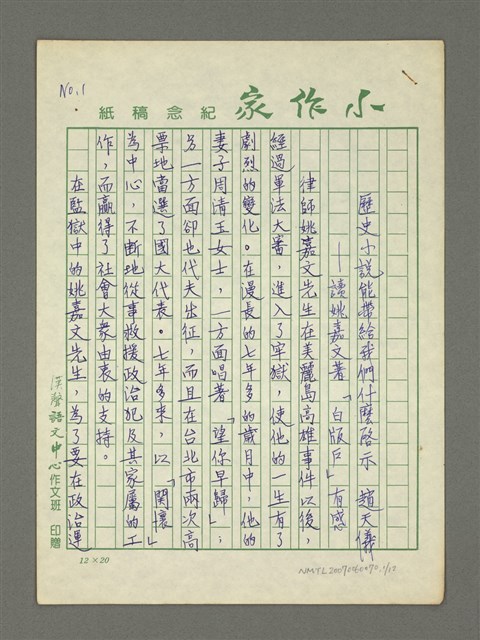 No.1
小作家 紀念稿紙
歷史小說能帶給我們什麼啓示 趙天儀
——讀姚嘉文著「白版戶」有感
律師姚嘉文先生在美麗島高雄事件以後，
經過軍法大審，進入了牢獄，使他的一生有了
劇烈的變化。在漫長的七年多的歲月中，他的
妻子周清玉女士，一方面唱著「望你早歸」；
另一方面卻也代夫出征，而且在台北市兩次高
票地當選了國大代表。七年多來，以「關懷」
為中心，不斷地從事救援政治犯及其家屬的工
作，而贏得了社會大衆由衷的支持。
在監獄中的姚嘉文先生，為了要在政治運
漢聲語文中心作文班 印贈
12×20